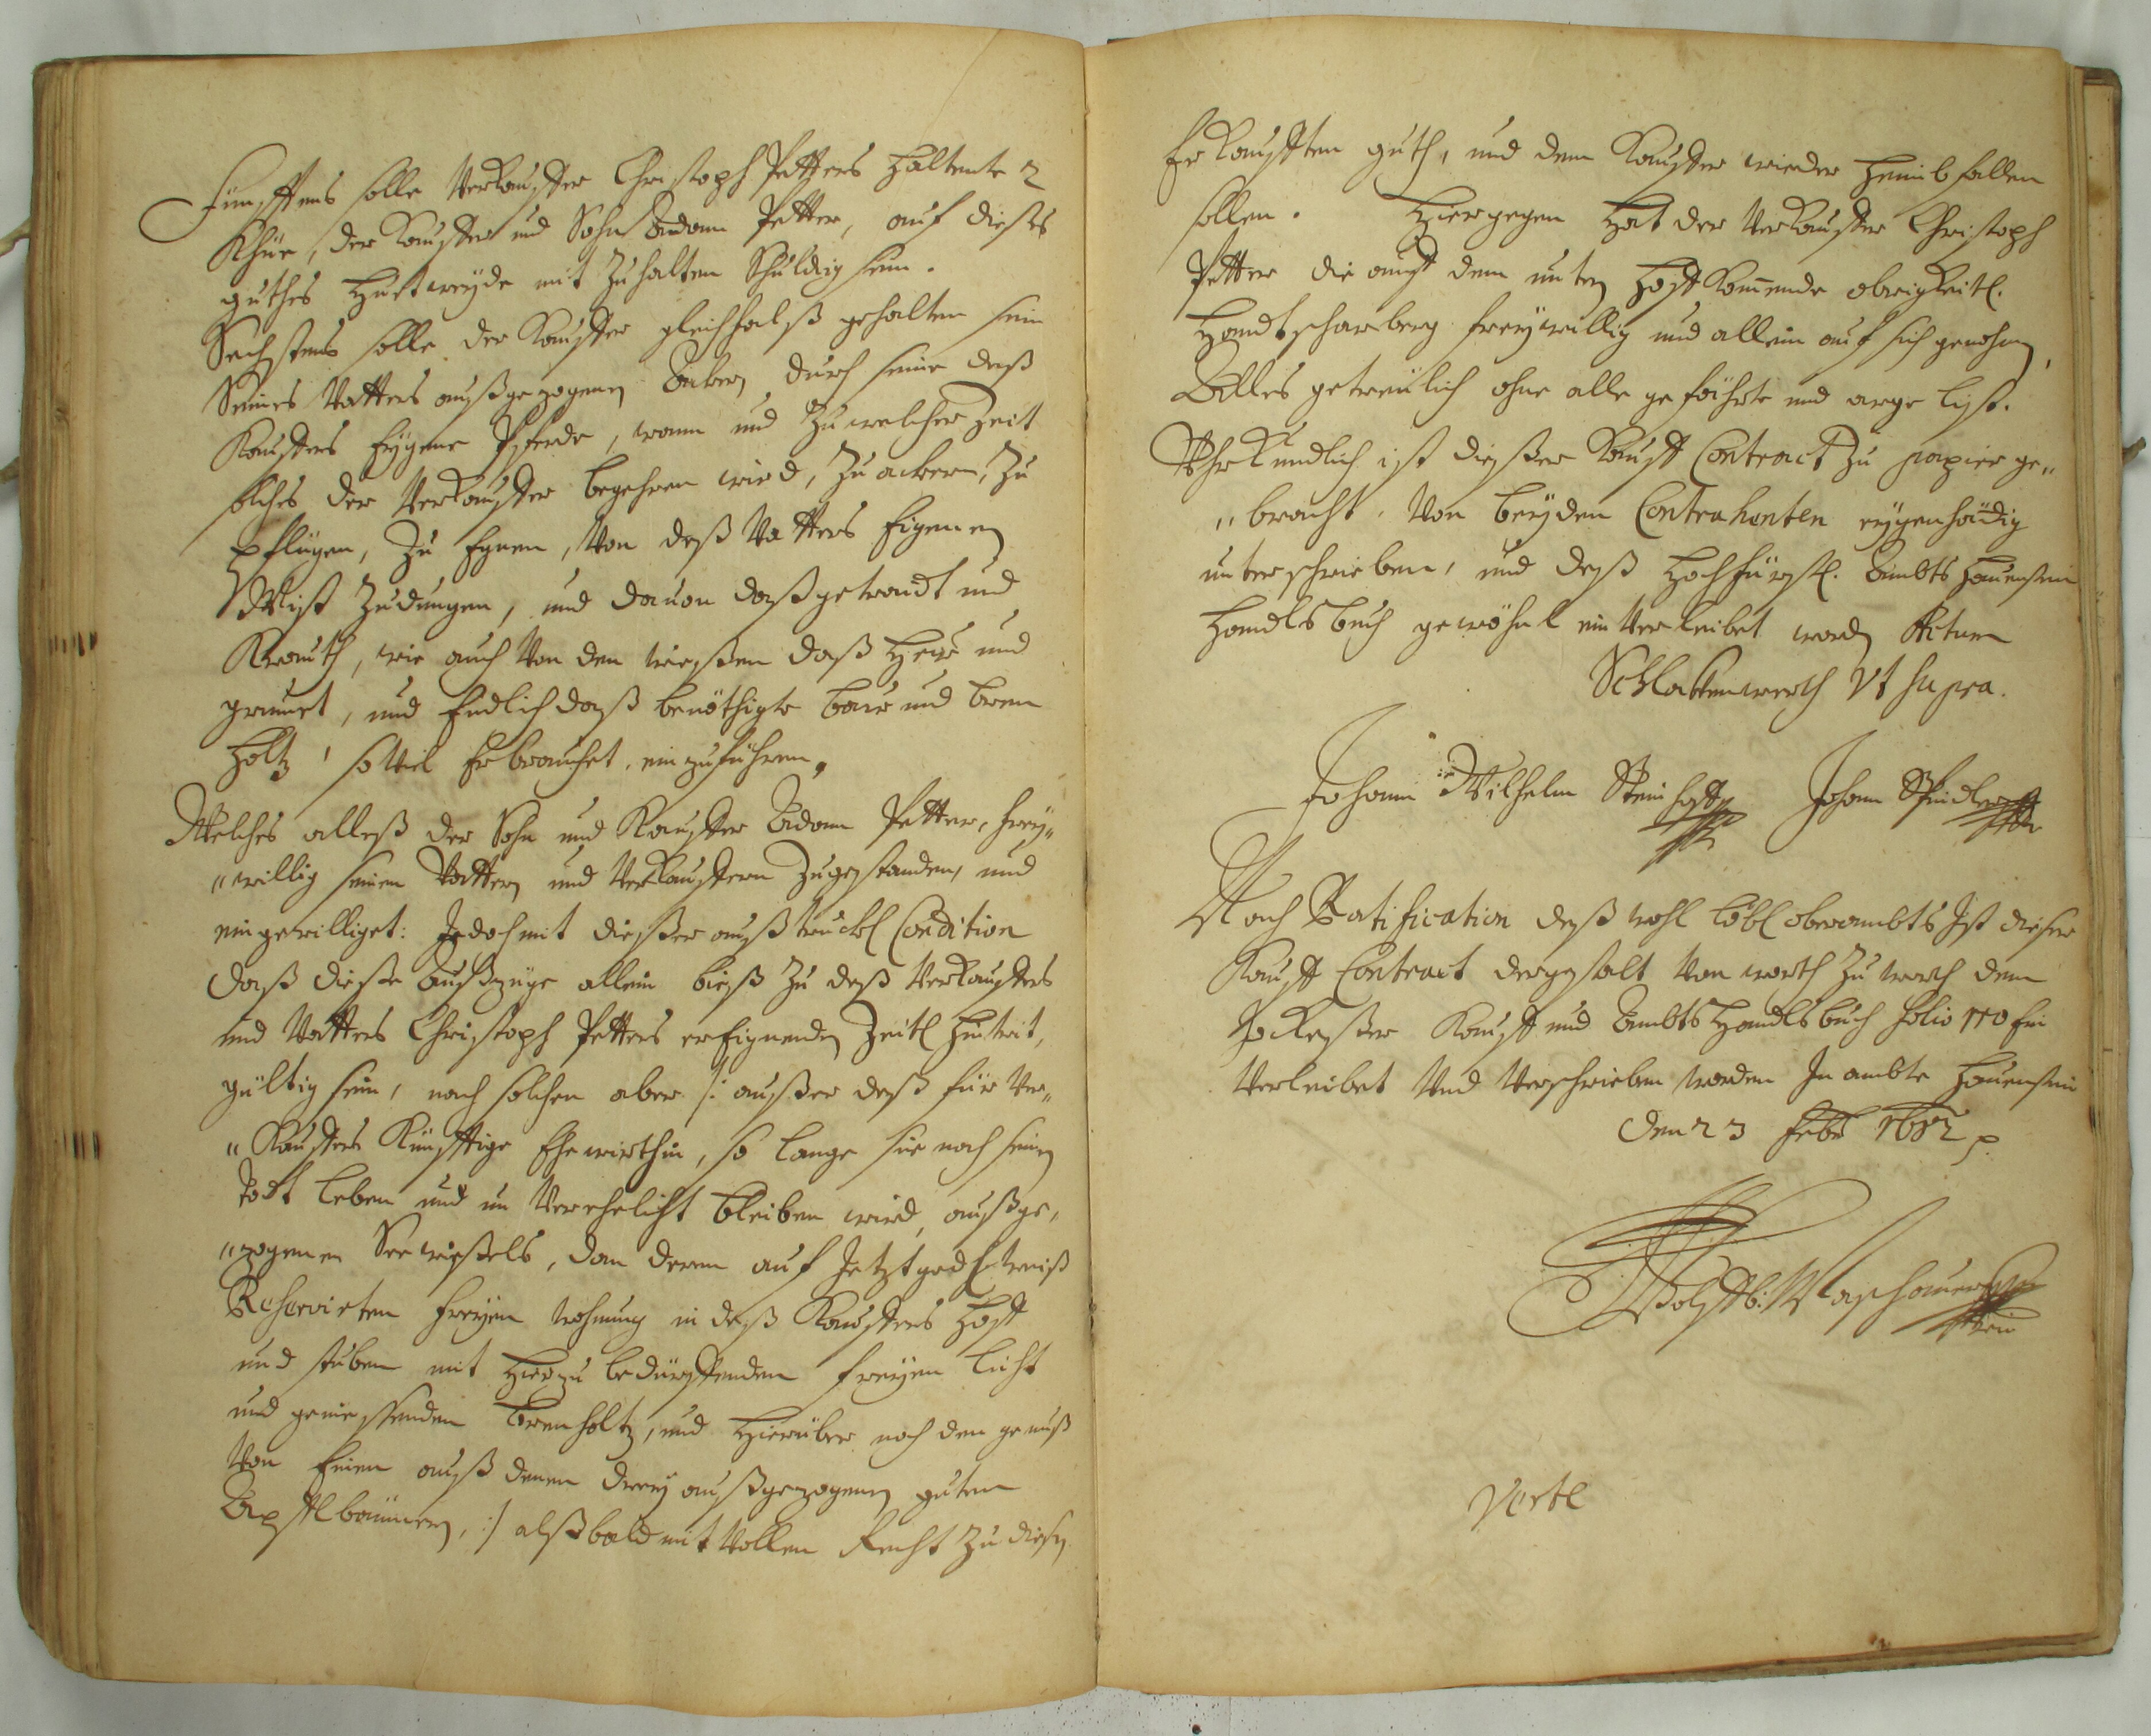 Fünfftens solle Verkauffer Christoph Petters haltente 2
Khüe, der Kauffer und Sohn Adam Petter, auf dießes
guthes Huetweyde mit Zuhalten Schuldig sein.
Sechstens solle der Kauffer gleichfalß gehalten sein
Seines Vatters außgezogenen Ackern durch seine deß
Kauffers Eygene Pferde, wann und Zu welcher Zeit
solches der Verkauffer begehren wird, Zu ackern, Zu
pflügen, Zu Egnen, Von deß Vatters Eigenen
Mist Zu dungen, und davon daß getraydt und
Krauth, wie auch Von den wießen daß Heu und
gruuet, und Endlich daß benöthigte bau und bren
Holtz, so Viel Er brauchet, einzuführen,
Welches alleß der Sohn und Kauffer Adam Petter, frey„
„willig seinen Vattern und Verkauffern Zugestanden, und
eingewilliget: Jedoch mit dießer außtruckl Condition
daß dieße Außzüge allein bieß Zu deß Verkauffers
und Vatters Christoph Petters ereignenden Zeitl Hintrit,
gültig sein, nach solchen aber /: außer deß für Ver„
„Kauffers Künfftige Ehewirthin, so lange sie nach seinen
Todt leben und un Verehelicht bleiben wird, außge„
„zogenen Seewießels, dan deren auf Jetztgedachte weiß
Reservirten freyen wohnung in deß Kauffers Hoff
und stuben mit Hierzu bedürffenden freyen licht
und geniessenden brenholtz, und Hierüber noch den genuß
Von Einen auß denen drey außgezogenen guten
Apfflbaümen, :/ alßbald mit Vollen Recht Zu diesen
Erkaufften guth, und dem Kauffer wieder Heimbfallen
sollen. Hiergegen Hat der Verkauffer Christoph
Petter die auff dem unten Hoff Komende obrigkeitl.
Handtscharberg freywillig und allein auf sich genohmen,
Alles getreulich ohne alle gefährte und arge list.
Uhrkundlich ist dießer Kauff Contract Zu papier ge„
„bracht, Von beyden Contrahenten eygenhändig
unterschrieben, und deß Hochfürstl. Ambts Hauenstein
Handlsbuch gewöhnl einVerleibet worden Actum
Schlakenwerth Ut supra.
Johann Wilhelm Johann
Nach Ratification deß wohl löbl oberambts Ist dieser
Kauff Contract dergestalt Von worth Zu worth dem
Kauff und Ambts Handlsbuch folio 170 Ein
Verleibet Und Verschrieben worden Im ambte Hauenstein
den 23 Febr 1682 p
Verte